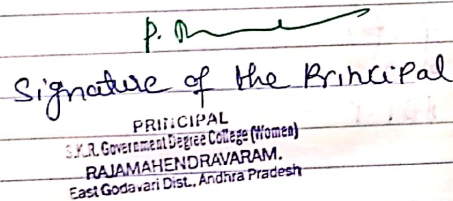 Signature of the Principal
PRINCIPAL
S.K.R. Government Degree College (Women)
RAJAMAHENDRAVARAM.
East Godavari Dist., Andhra Pradesh